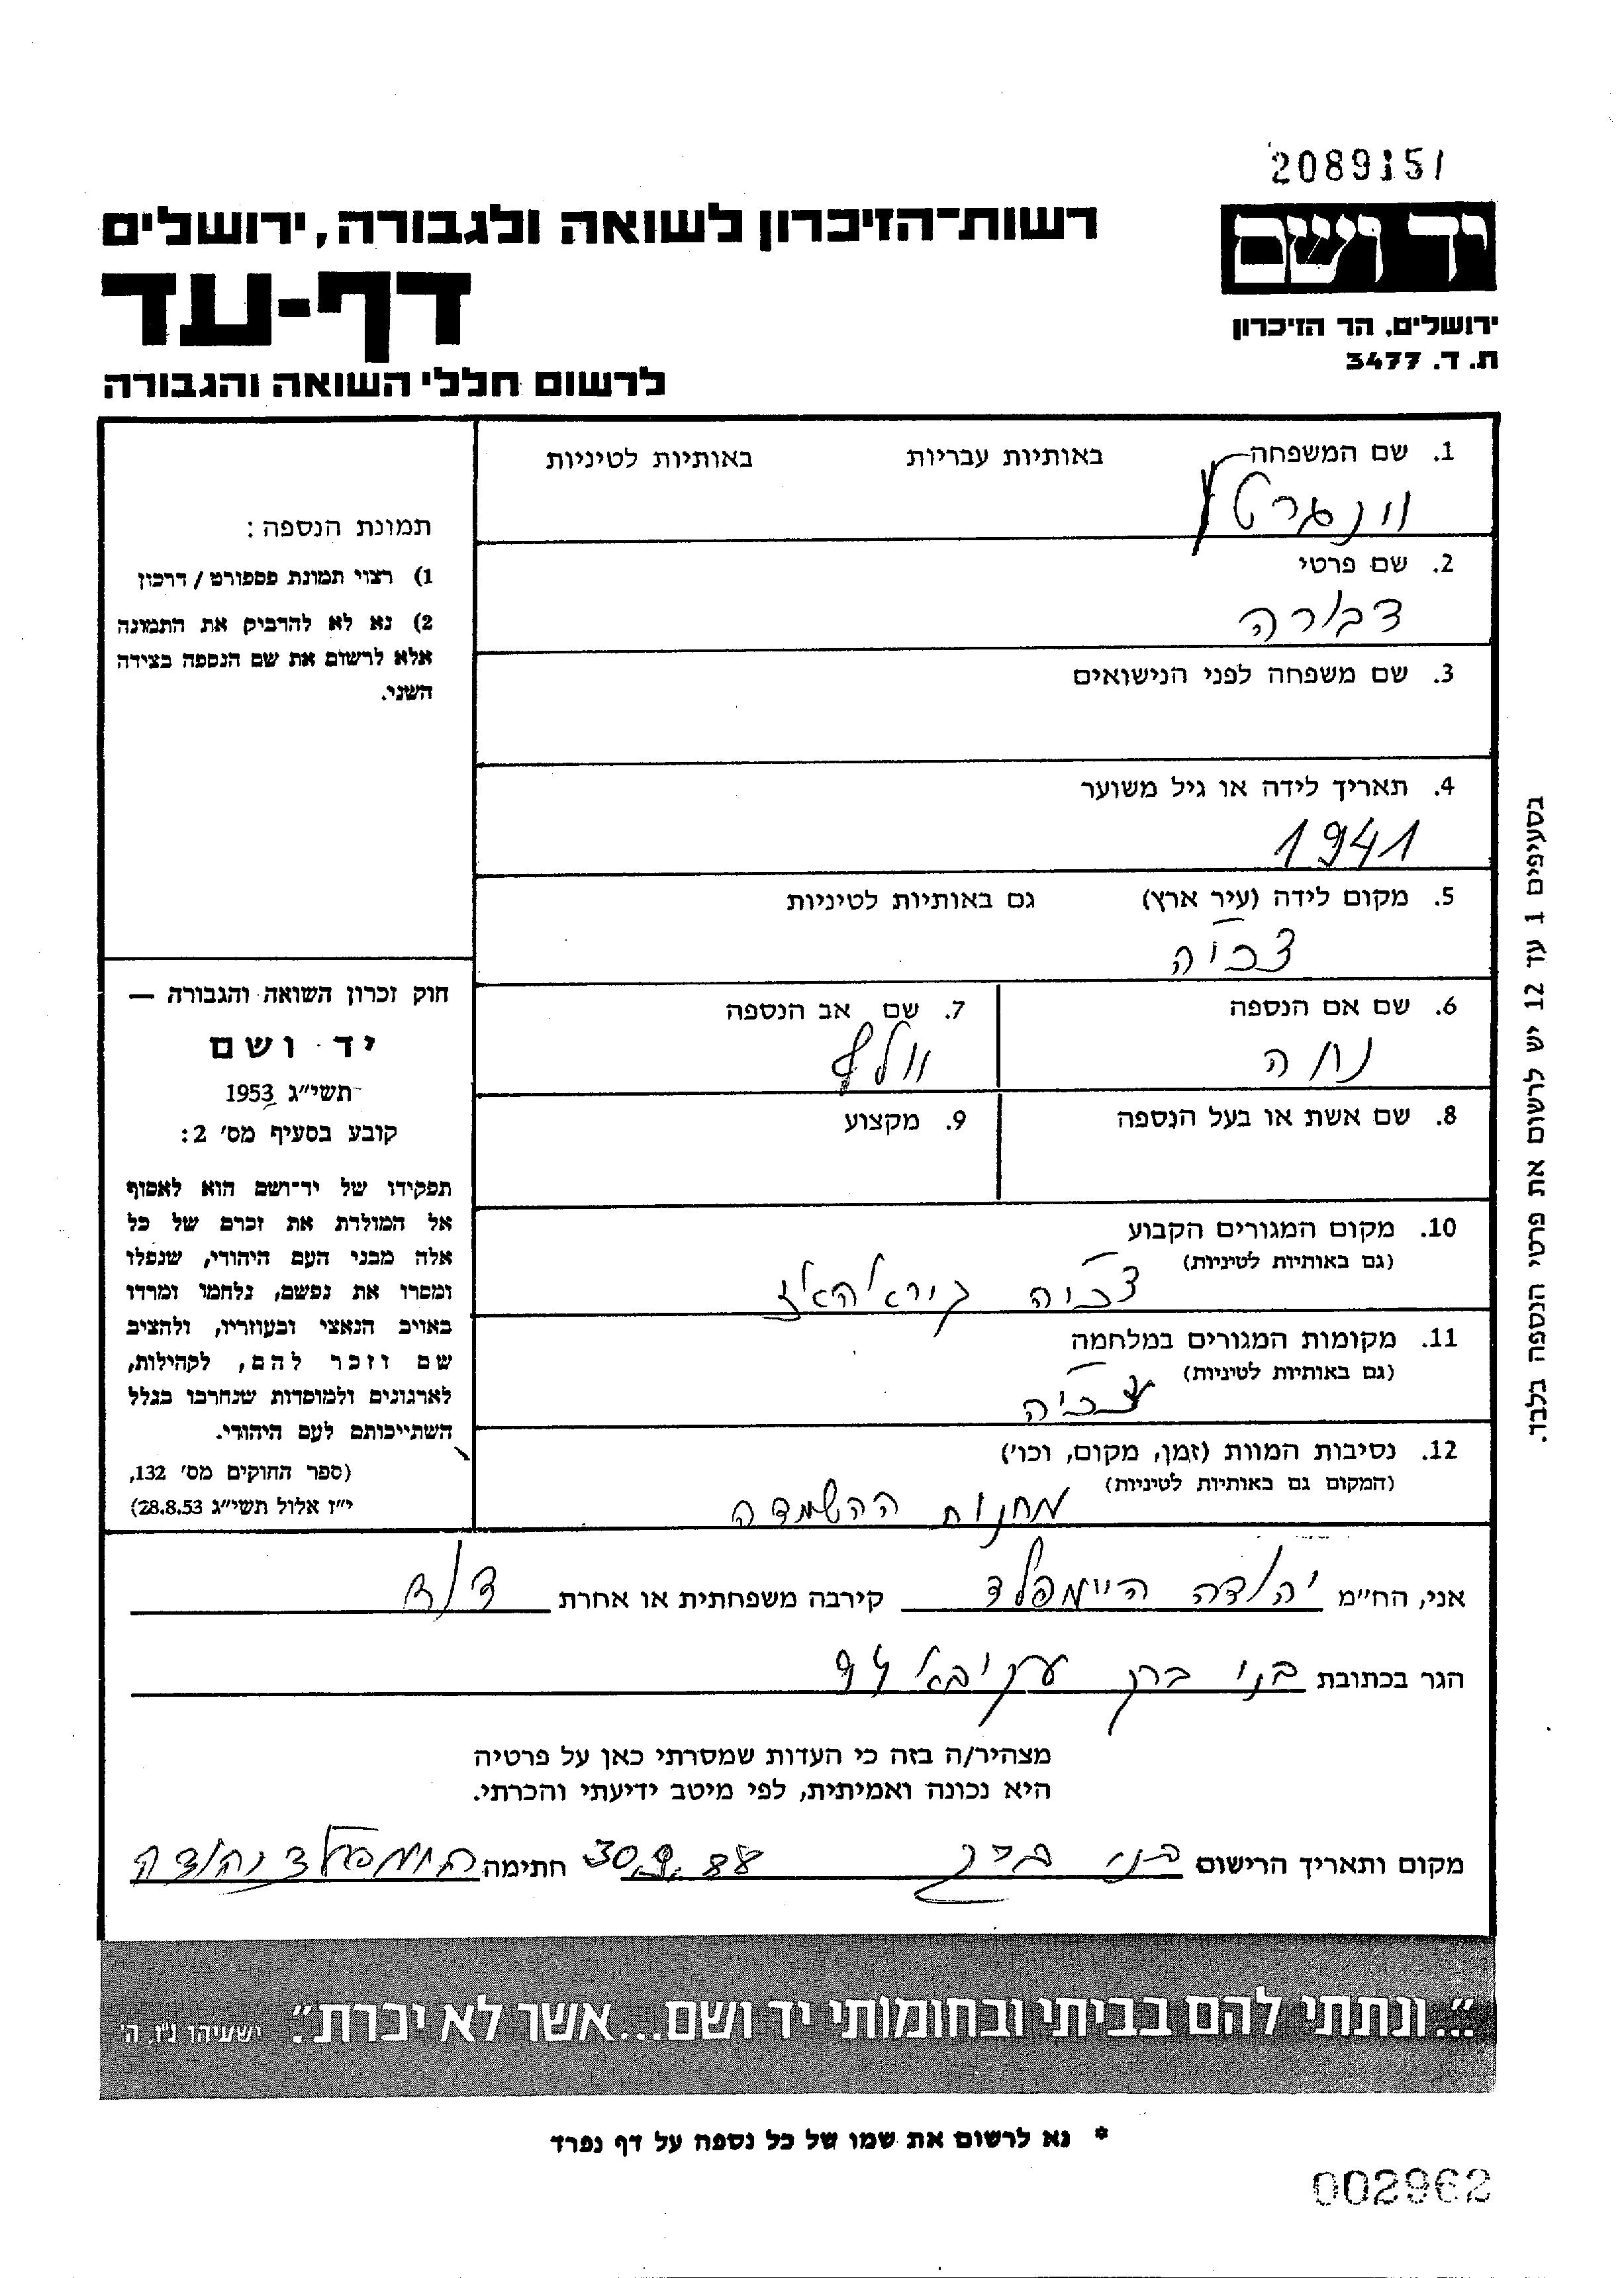 2089151
יד ושם
רשות-הזיכרון לשואה ולגבורה, ירושלים
דף-עד
ירושלים, הר הזיכרון
ת. ד. 3477
לרשום חללי השואה והגבורה
1. שם המשפחה באותיות עבריות באותיות לטיניות
ווינגרטן
2. שם פרטי
דבורה
3. שם משפחה לפני הנישואים
4. תאריך לידה או גיל משוער
1941
5. מקום לידה (עיר ארץ) גם באותיות לטיניות
צביה
6. שם אם הנספה
7. שם אב הנספה
וולף
8. שם אשת או בעל הנספה
9. מקצוע
10. מקום המגורים הקבוע
(גם באותיות לטיניות)
צביה
11. מקומות המגורים במלחמה
(גם באותיות לטיניות)
צביה
12. נסיבות המוות (זמן, מקום, וכו')
(המקום גם באותיות לטיניות)
מחנות ההשמדה
תמונת הנספה:
1) רצוי תמונת פספורט / דרכון
2) נא לא להדביק את התמונה
אלא לרשום את שם הנספה בצידה
השני.
חוק זכרון השואה והגבורה —
יד ושם
תשי"ג 1953
קובע בסעיף מס' 2:
תפקידו של יד-ושם הוא לאסוף
אל המולדת את זכרם של כל
אלה מבני העם היהודי, שנפלו
ומסרו את נפשם, נלחמו ומרדו
באויב הנאצי ובעוזריו, ולהציב
שם וזכר להם, לקהילות,
לארגונים ולמוסדות שנחרבו בגלל
השתייכותם לעם היהודי.
(ספר החוקים מס' 132,
י"ז אלול תשי"ג 28.8.53)
בסעיפים 1 עד 12 יש לרשום את פרטי הנספה בלבד.
אני, הח"מ יהודה היימפלד קירבה משפחתית או אחרת דוד
הגר בכתובת בני ברק עקיבא 94
מצהיר/ה בזה כי העדות שמסרתי כאן על פרטיה
היא נכונה ואמיתית, לפי מיטב ידיעתי והכרתי.
מקום ותאריך הרישום בני ברק 30.9.88 חתימה היימפלד יהודה
"...ונתתי להם בביתי ובחומותי יד ושם...אשר לא יכרת". ישעיהו נ"ו, ה'
* נא לרשום את שמו של כל נספה על דף נפרד
002962